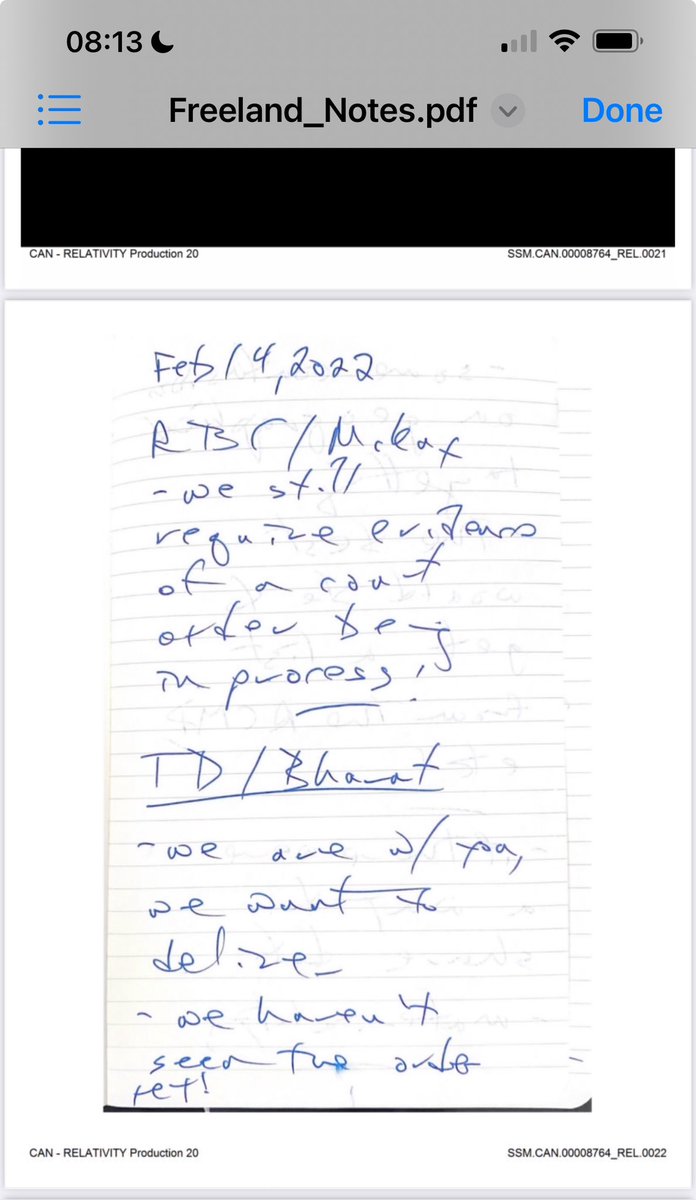 08:13
Freeland_Notes.pdf
Done
CAN - RELATIVITY Production 20
SSM.CAN.00008764_REL.0021
Feb 14, 2022
RBC/McKay
- we still
require evidence
of a court
order being
in process!
TD/Bharat
- we are w/ you,
we want to
deliver
- we haven't
seen the order
yet!
CAN - RELATIVITY Production 20
SSM.CAN.00008764_REL.0022